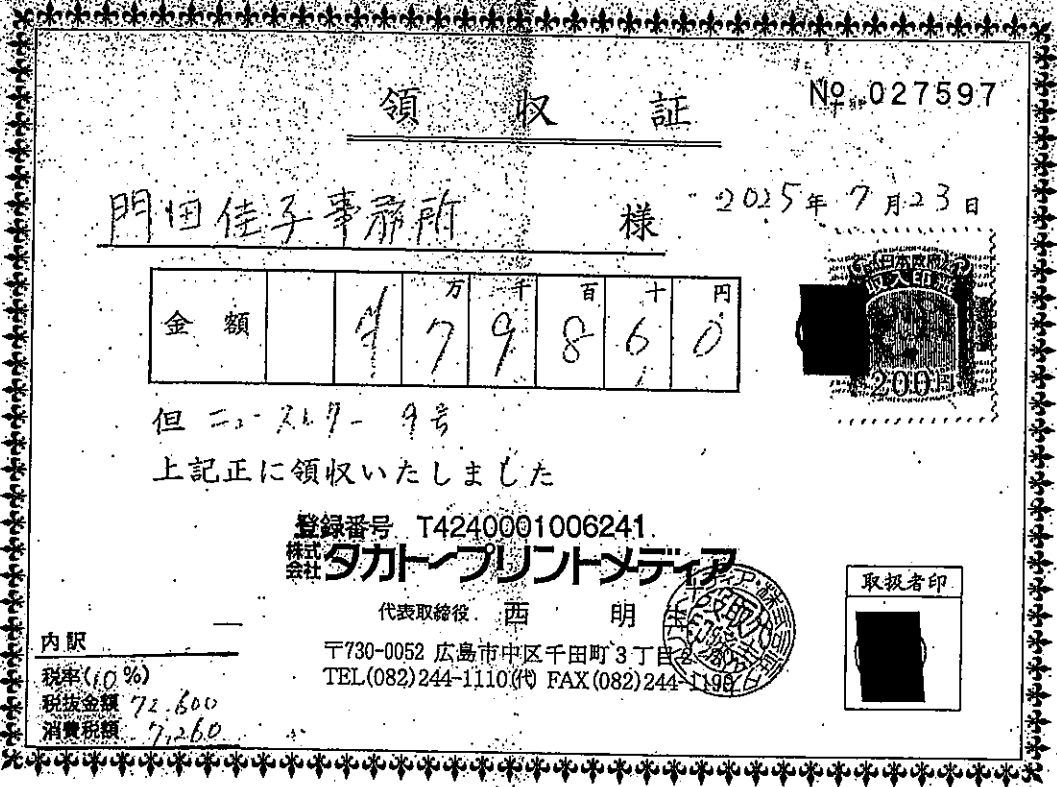 領収証
No 027597
門田佳子事務所 様
2025年 7月23日
日本政府
収入印紙
200円
金額 ¥79860
万 千 百 十 円
但 ニュースレター 9号
上記正に領収いたしました
登録番号 T4240001006241
株式会社 タカトープリントメディア
代表取締役 西 明
〒730-0052 広島市中区千田町3丁目2
TEL(082)244-1110(代) FAX(082)244-1190
取扱者印
内訳
税率(10%)
税抜金額 72,600
消費税額 7,260